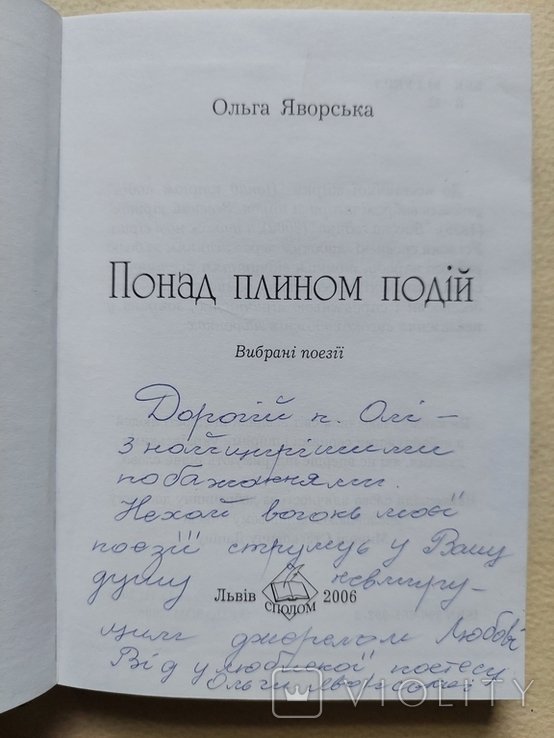 Ольга Яворська
Понад плином подій
Вибрані поезії
Дорогій п. Олі –
з найщирішими
побажаннями.
Нехай вогонь моєї
поезії струмує у Вашу
душу невмиру-
Львів СПОЛОМ 2006
щим джерелом Любові
Від улюбленої поетеси
Ольги Яворської
VIOLITY